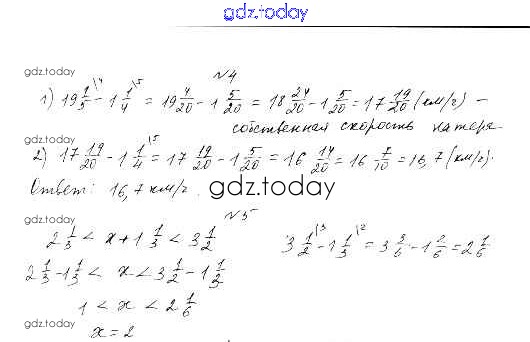 gdz.today
№4
gdz.today
1) 19 1/5 \4 − 1 1/4 \5 = 19 4/20 − 1 5/20 = 18 24/20 − 1 5/20 = 17 19/20 (км/г) −
собственная скорость катера.
gdz.today
2) 17 19/20 − 1 1/4 \5 = 17 19/20 − 1 5/20 = 16 14/20 = 16 7/10 = 16,7 (км/г).
Ответ: 16,7 км/г.
gdz.today
№5
gdz.today
2 1/3 < x + 1 1/3 < 3 1/2
3 1/2 \3 − 1 1/3 \2 = 3 3/6 − 1 2/6 = 2 1/6
2 1/3 − 1 1/3 < x < 3 1/2 − 1 1/3
1 < x < 2 1/6
gdz.today
x = 2